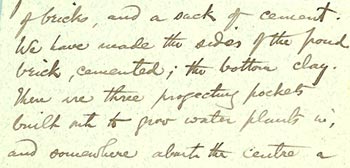 of bricks, and a sack of cement.
We have made the sides of the pond
brick, cemented; the bottom clay.
Then we three projecting pockets
built out to grow water plants in,
and somewhere about the centre a